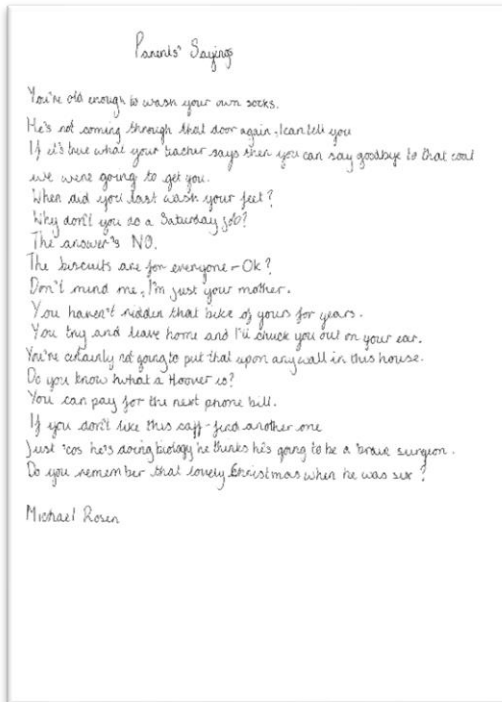 Parents' Sayings
You're old enough to wash your own socks.
He's not coming through that door again, I can tell you
If it's true what your teacher says then you can say goodbye to that coat
we were going to get you.
When did you last wash your feet?
Why don't you do a Saturday job?
The answer's NO.
The biscuits are for everyone - Ok?
Don't mind me, I'm just your mother.
You haven't ridden that bike of yours for years.
You try and leave home and I'll chuck you out on your ear.
You're certainly not going to put that upon any wall in this house.
Do you know what a Hoover is?
You can pay for the next phone bill.
If you don't like this caff - find another one
Just 'cos he's doing biology he thinks he's going to be a brain surgeon.
Do you remember that lovely Christmas when he was six?
Michael Rosen